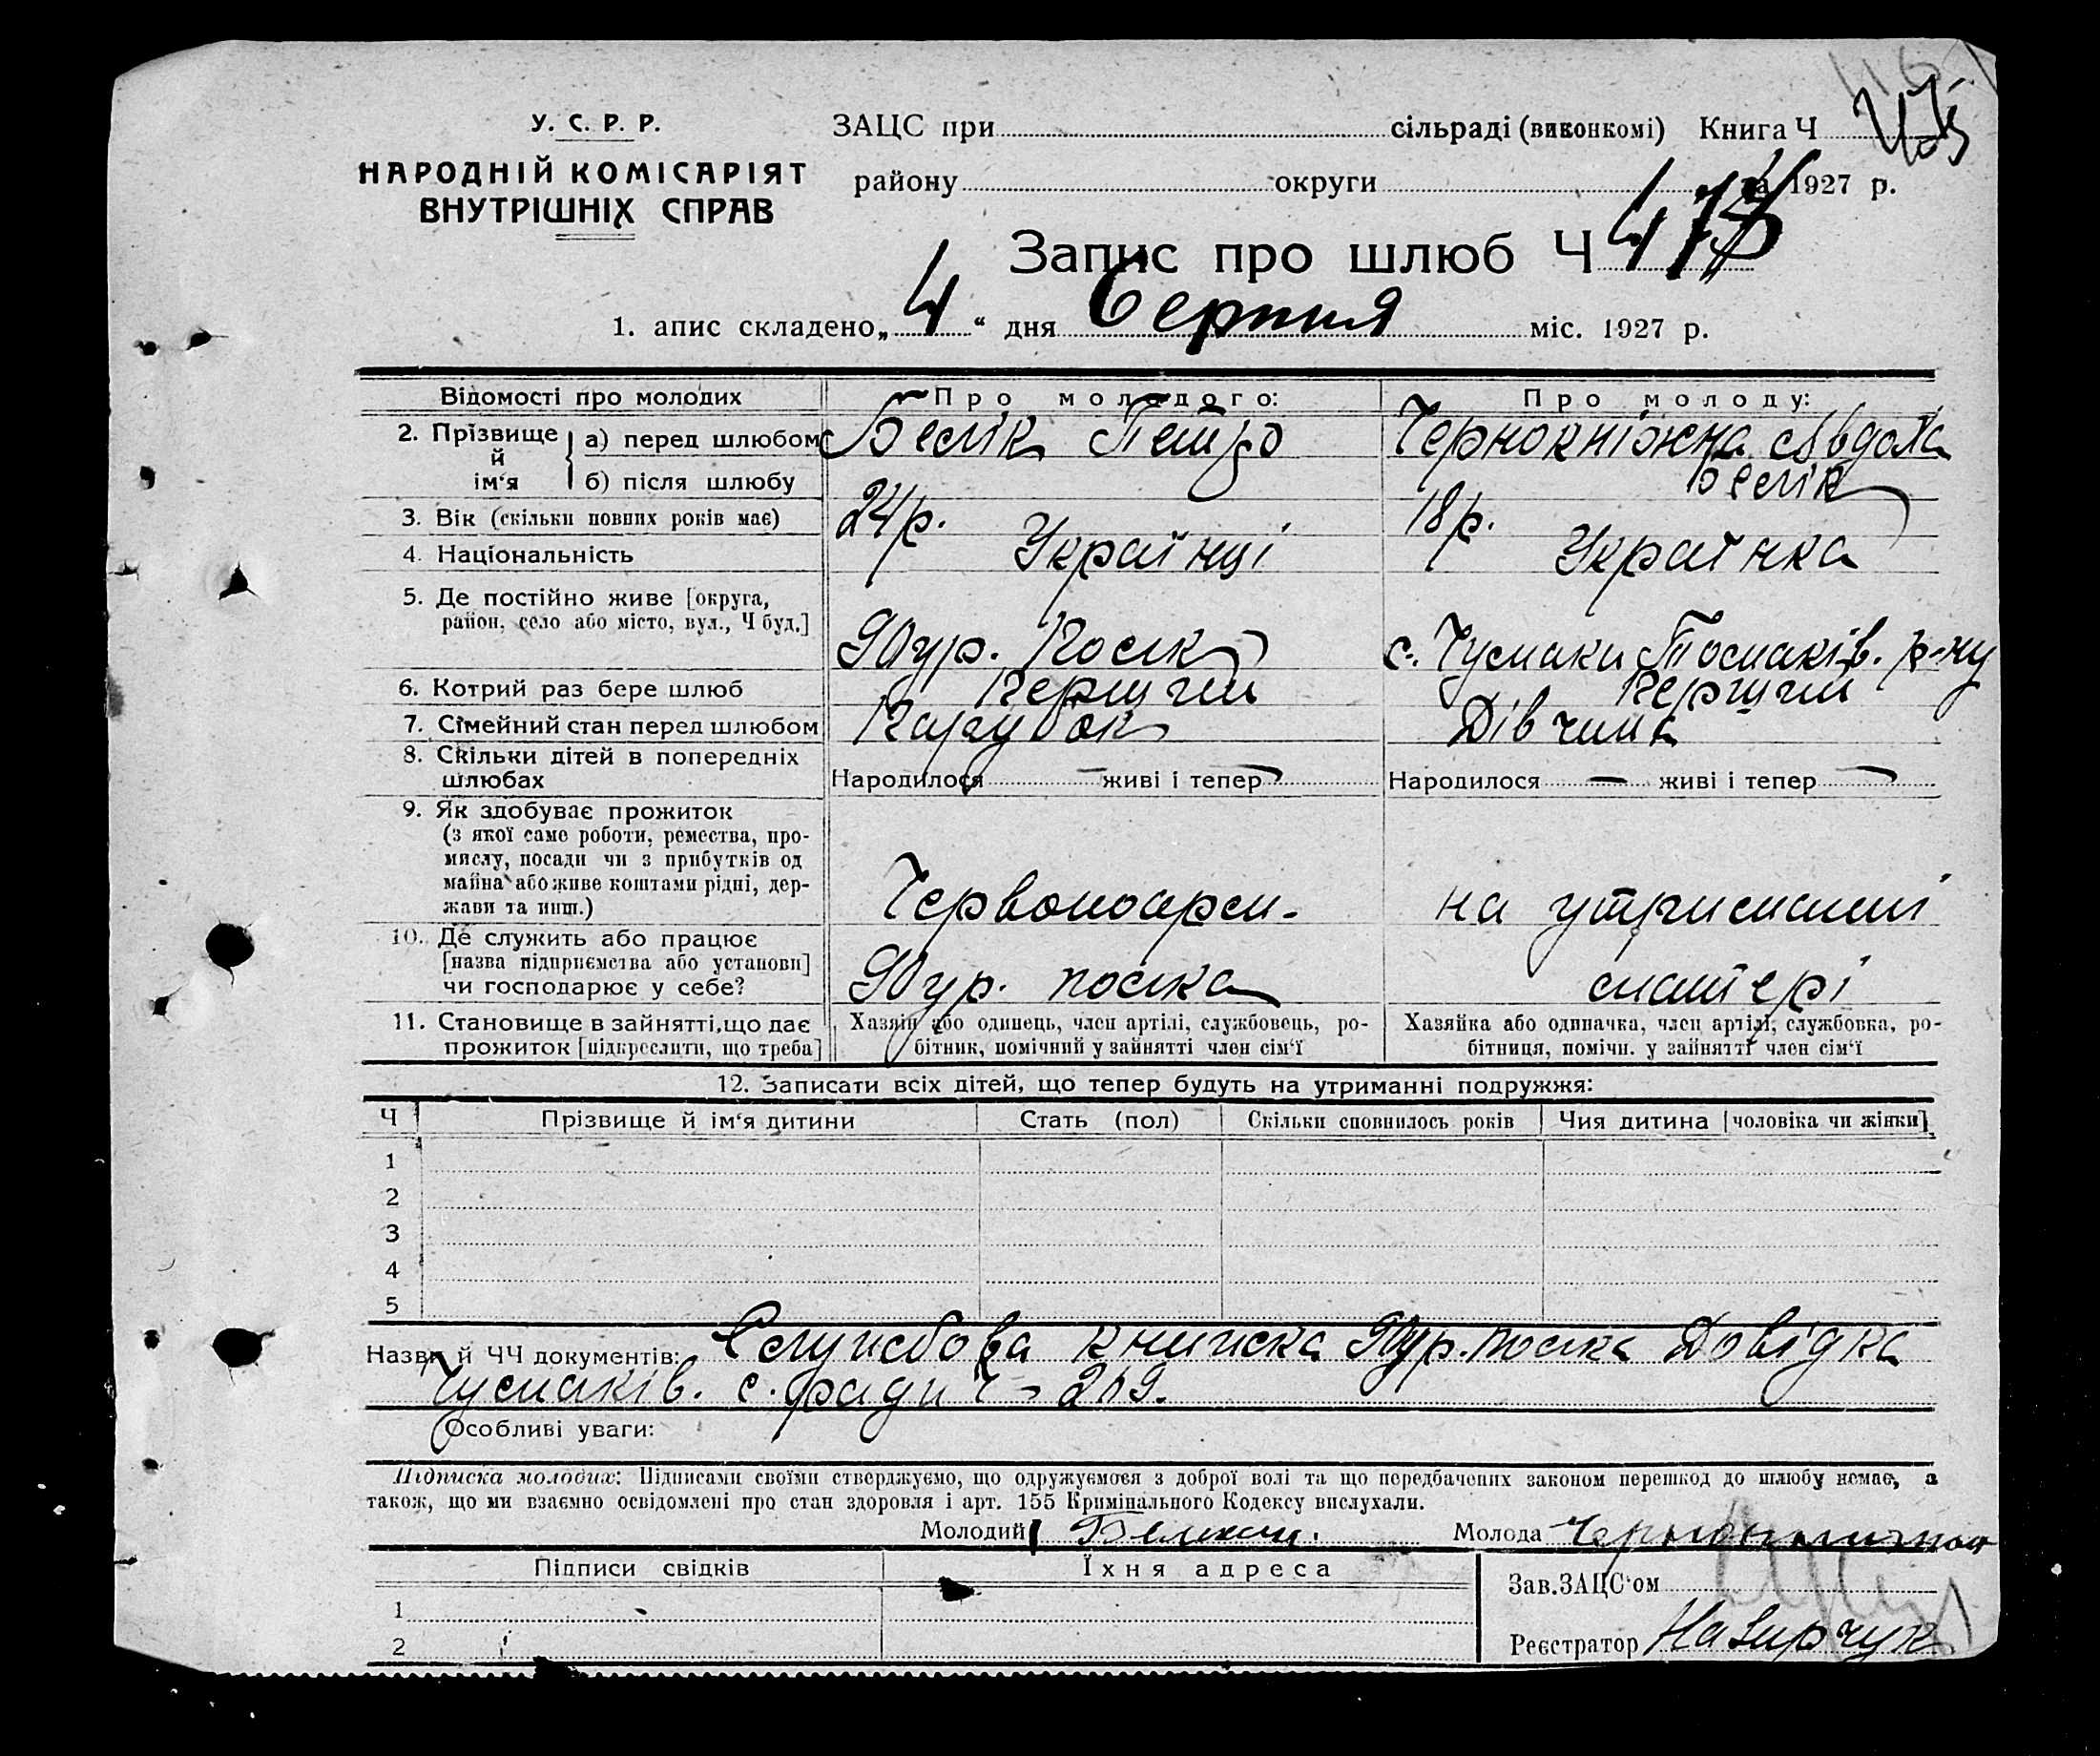 У. С. Р. Р.
НАРОДНІЙ КОМІСАРІЯТ
ВНУТРІШНІХ СПРАВ
ЗАЦС при сільраді (виконкомі) Книга Ч
району округи за 1927 р.
Запис про шлюб Ч 47
1. апис складено „4“ дня Серпня міс. 1927 р.
Відомості про молодих Про молодого: Про молоду:
2. Прізвище й ім‘я а) перед шлюбом Белік Петро Чернокніжна Явдоха
б) після шлюбу Белік
3. Вік (скільки повних років має) 24 р. 18 р.
4. Національність Українці Українка
5. Де постійно живе [округа,
район, село або місто, вул., Ч буд.] с. Чумаки р-ну
6. Котрий раз бере шлюб Перший Перший
7. Сімейний стан перед шлюбом Парубок Дівчина
8. Скільки дітей в попередніх
шлюбах Народилося — живі і тепер Народилося — живі і тепер
9. Як здобуває прожиток
(з якої саме роботи, ремества, про-
мислу, посади чи з прибутків од
майна або живе коштами рідні, дер-
жави та инш.) Червоноарм. на утриманні
10. Де служить або працює
[назва підприємства або установи]
чи господарює у себе? полка матері
11. Становище в зайнятті, що дає
прожиток [підкреслити, що треба]
Хазяїн або одинець, член артілі, службовець, ро-
бітник, помічний у зайнятті член сім‘ї
Хазяйка або одиначка, член артілі, службовка, ро-
бітниця, помічн. у зайнятті член сім‘ї
12. Записати всіх дітей, що тепер будуть на утриманні подружжя:
Ч Прізвище й ім‘я дитини Стать (пол) Скільки сповнилось років Чия дитина [чоловіка чи жінки]
1
2
3
4
5
Назви й ЧЧ документів: Службова книжка полка Довідка
Чумаків. с. ради Ч
Особливі уваги:
Підписка молодих: Підписами своїми стверджуємо, що одружуємося з доброї волі та що передбачених законом перешкод до шлюбу немає, а
також, що ми взаємно освідомлені про стан здоровля і арт. 155 Кримінального Кодексу вислухали.
Молодий Молода
Підписи свідків Їхня адреса
1
2
Зав. ЗАЦС‘ом
Реєстратор